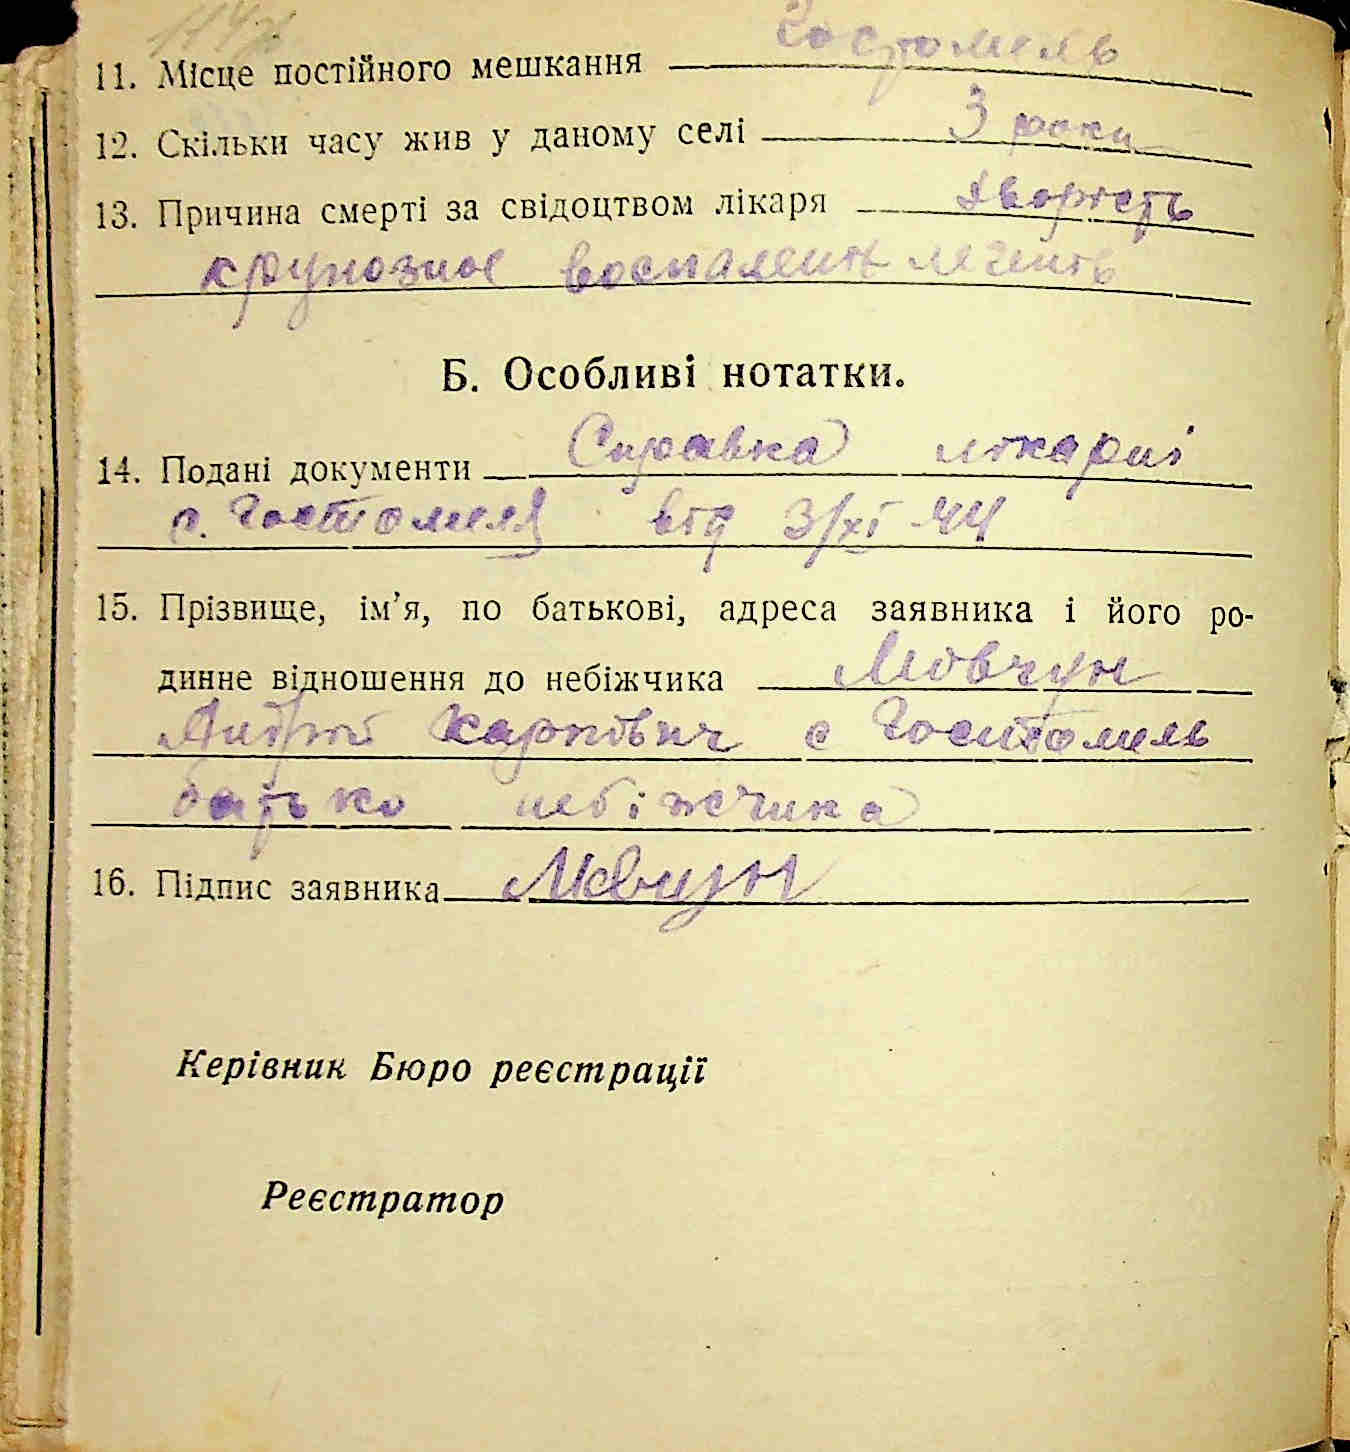 11. Місце постійного мешкання Гостомель
12. Скільки часу жив у даному селі 3 роки
13. Причина смерті за свідоцтвом лікаря Хворість
крупозное воспаление легень
Б. Особливі нотатки.
14. Подані документи Справка лікарні
с. Гостомеля від 3/XI 44
15. Прізвище, ім’я, по батькові, адреса заявника і його ро-
динне відношення до небіжчика Мовчун
Андрій Карпович с Гостомель
батько небіжчика
16. Підпис заявника Мовчун
Керівник Бюро реєстрації
Реєстратор